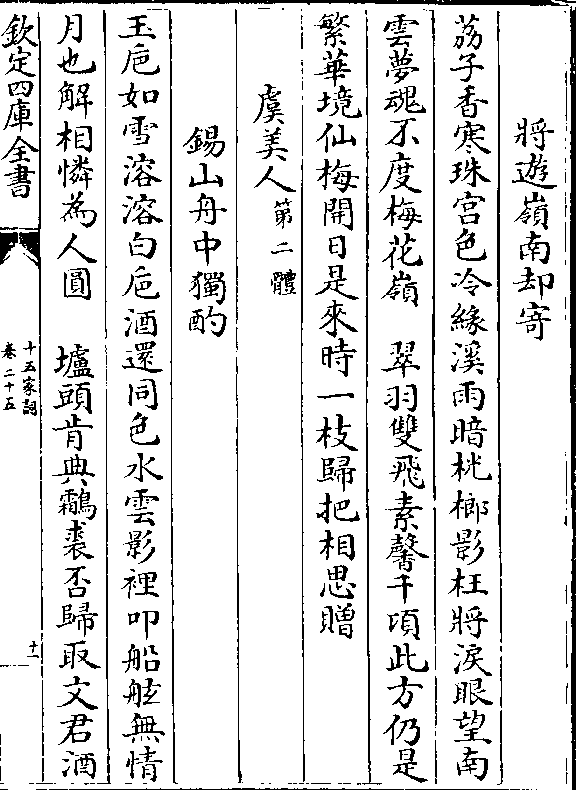 將遊嶺南却寄
荔子香寒珠宫色冷緣溪雨暗桄榔影枉將淚眼望南
雲夢魂不度梅花嶺　翠羽雙飛素馨千頃此方仍是
繁華境仙梅開日是來時一枝歸把相思贈
虞美人第二體
錫山舟中獨酌
玉巵如雪溶溶白巵酒還同色水雲影裡叩船舷無情
月也解相憐為人圓　壚頭肯典鷫裘否歸取文君酒
欽定四庫全書
十五家詞
卷二十五
十一